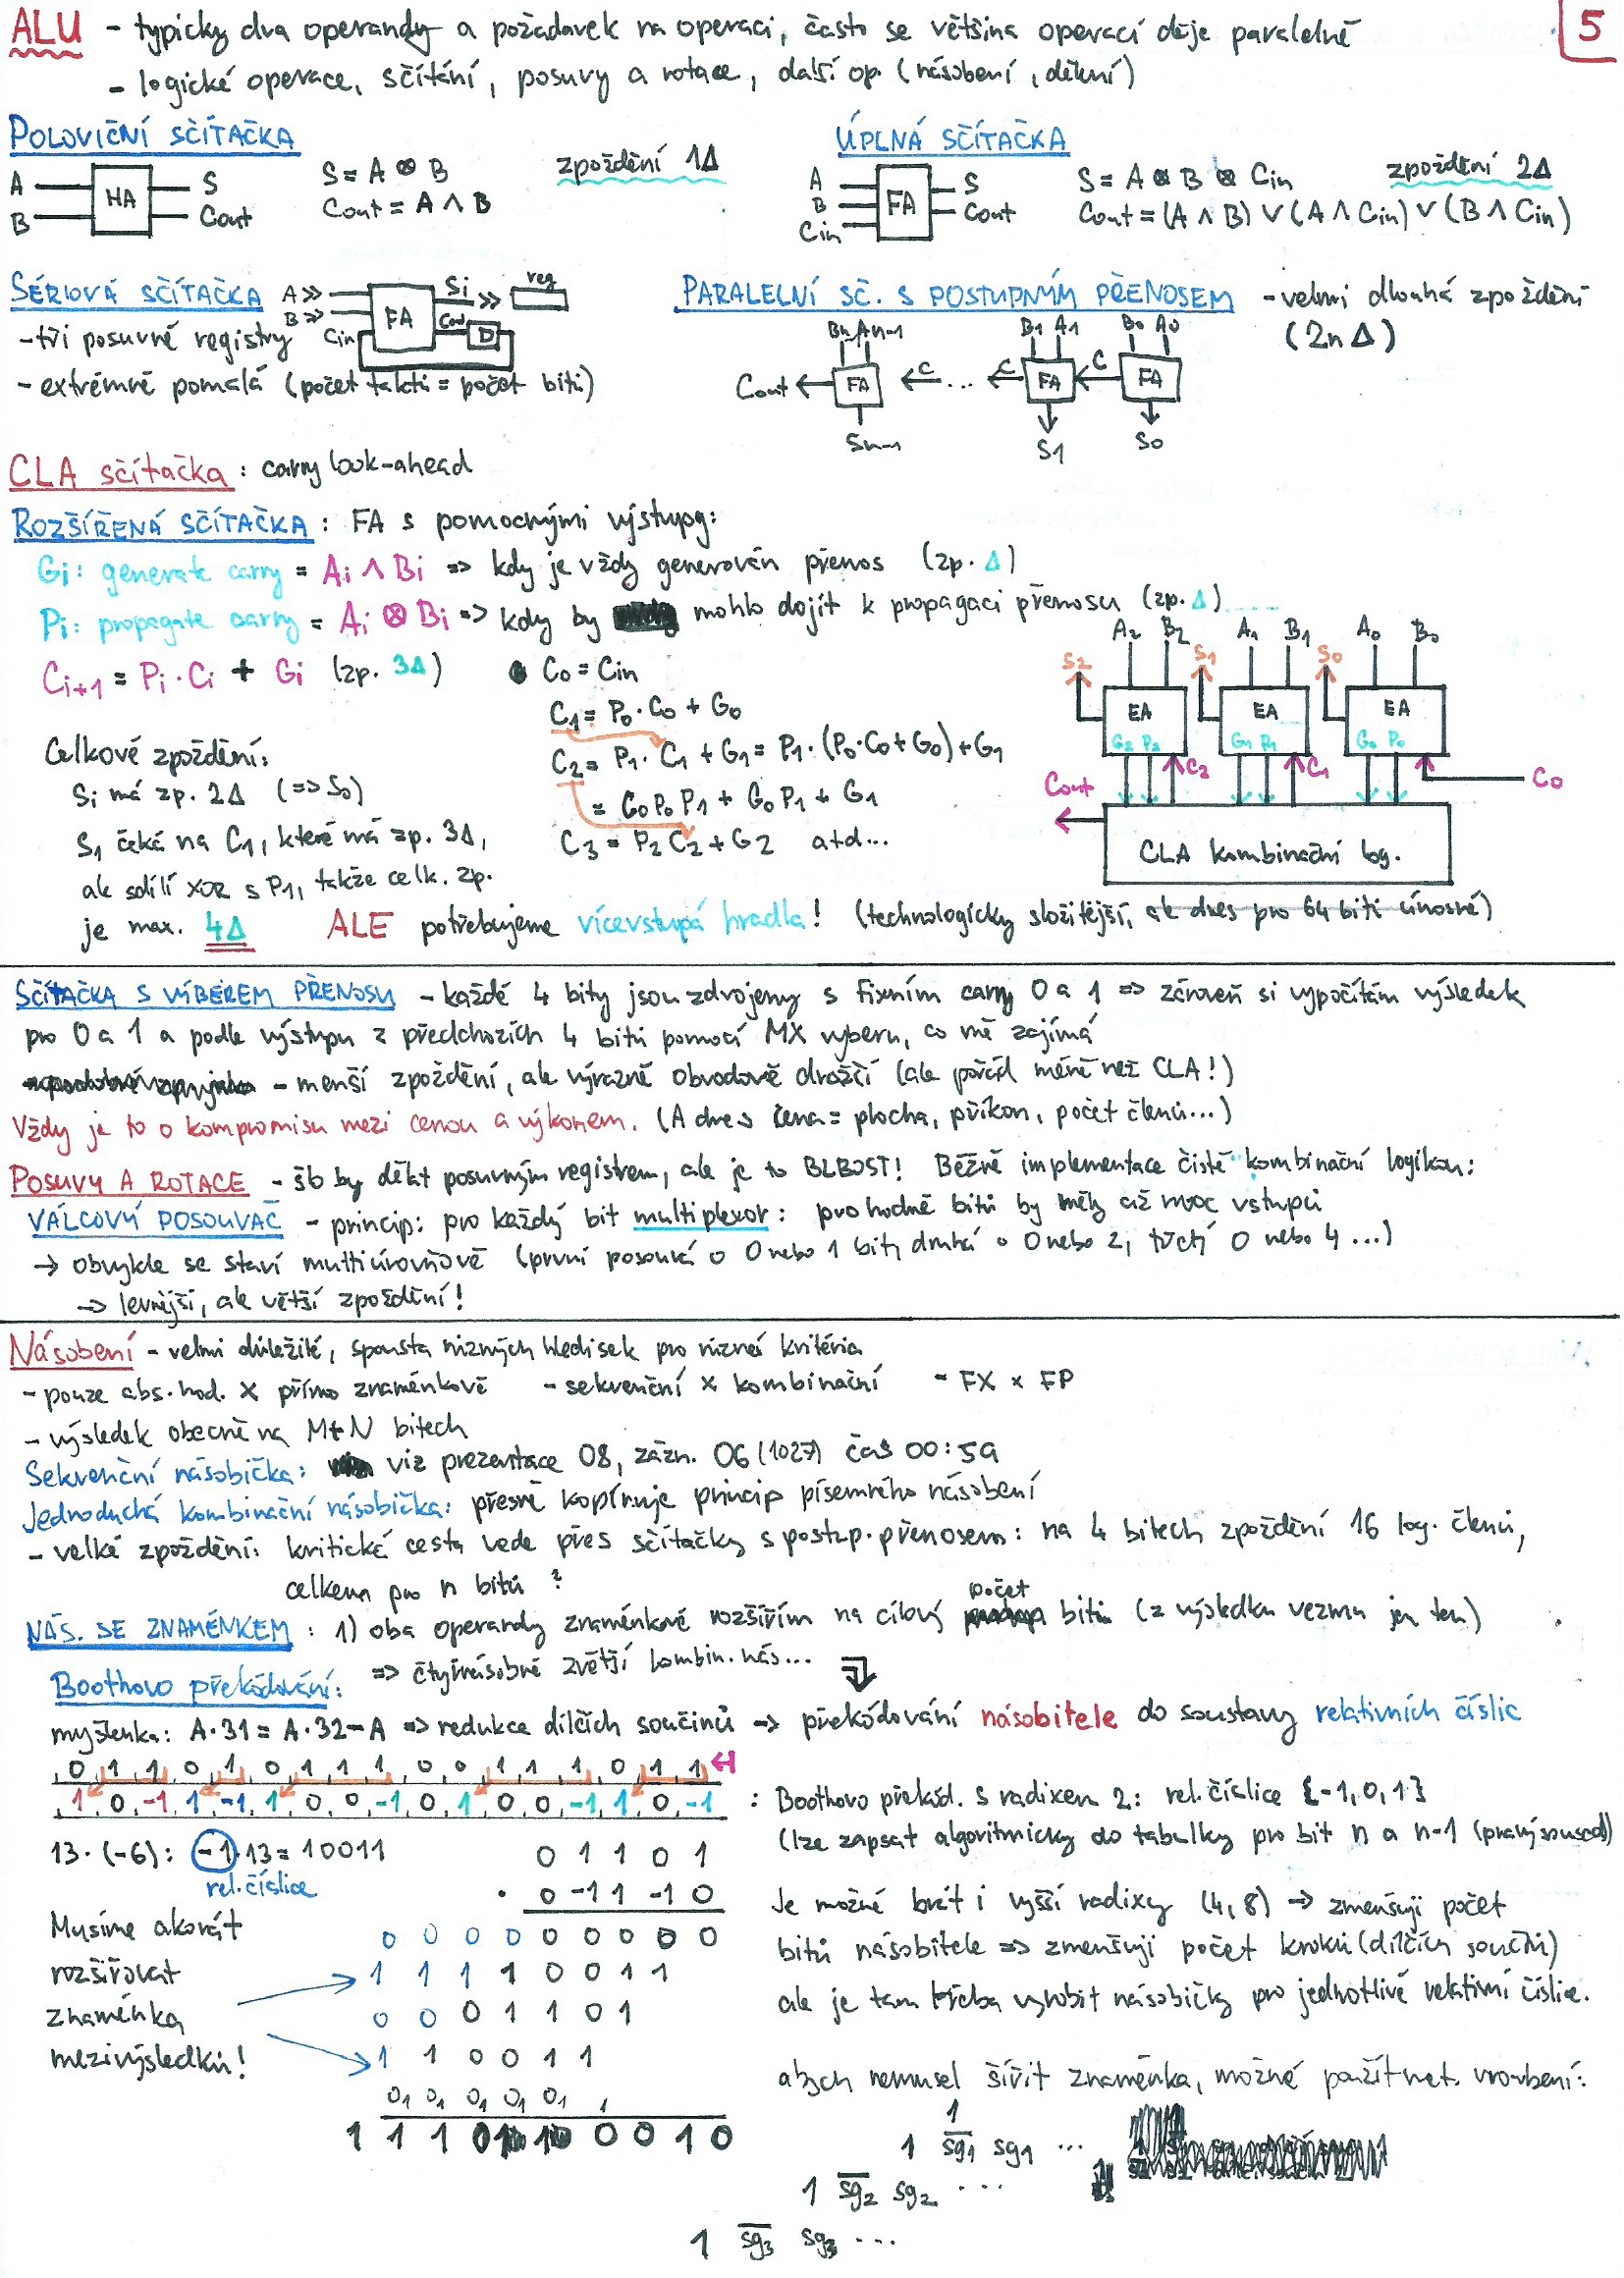 ALU - typicky dva operandy a požadavek na operaci, často se většina operací děje paralelně
5
- logické operace, sčítání, posuvy a rotace, další op. (násobení, dělení)
POLOVIČNÍ SČÍTAČKA
A
B
HA
S
Cout
S = A ⊗ B
Cout = A ∧ B
zpoždění 1Δ
ÚPLNÁ SČÍTAČKA
A
B
Cin
FA
S
Cout
S = A ⊗ B ⊗ Cin
Cout = (A ∧ B) ∨ (A ∧ Cin) ∨ (B ∧ Cin)
zpoždění 2Δ
SÉRIOVÁ SČÍTAČKA
A >>
B >>
Cin
FA
Si >>
reg
Cout
D
- tři posuvné registry
- extrémně pomalá (počet taktů = počet bitů)
PARALELNÍ SČ. S POSTUPNÝM PŘENOSEM - velmi dlouhá zpoždění
(2n Δ)
Bn An-1 B1 A1 B0 A0
Cout FA C ... C FA C FA
Sn-1 S1 S0
CLA sčítačka: carry look-ahead
ROZŠÍŘENÁ SČÍTAČKA: FA s pomocnými výstupy:
Gi: generate carry = Ai ∧ Bi => kdy je vždy generován přenos (zp. Δ)
Pi: propagate carry = Ai ⊗ Bi => kdy by mohlo dojít k propagaci přenosu (zp. Δ)
Ci+1 = Pi · Ci + Gi (zp. 3Δ)
C0 = Cin
C1 = P0 · C0 + G0
C2 = P1 · C1 + G1 = P1 · (P0 · C0 + G0) + G1
= C0 P0 P1 + G0 P1 + G1
C3 = P2 C2 + G2 atd...
Celkové zpoždění:
Si má zp. 2Δ (=> S0)
S1 čeká na C1, které má zp. 3Δ,
ale sdílí XOR s P1, takže celk. zp.
je max. 4Δ
A2 B2 A1 B1 A0 B0
S2 S1 S0
EA EA EA
G2 P2 G1 P1 G0 P0
Cout C2 C1 C0
CLA kombinační log.
ALE potřebujeme vícevstupá hradla! (technologicky složitější, ale dnes pro 64 bitů únosné)
SČÍTAČKA S VÝBĚREM PŘENOSU - každé 4 bity jsou zdvojeny s fixním carry 0 a 1 => zároveň si vypočítám výsledek
pro 0 a 1 a podle výstupu z předchozích 4 bitů pomocí MX vyberu, co mě zajímá
- menší zpoždění, ale výrazně obvodově dražší (ale pořád méně než CLA!)
Vždy je to o kompromisu mezi cenou a výkonem. (A dnes cena = plocha, příkon, počet členů...)
POSUVY A ROTACE - šlo by dělat posuvným registrem, ale je to BLBOST! Běžně implementace čistě kombinační logikou:
VÁLCOVÝ POSOUVAČ - princip: pro každý bit multiplexor: pro hodně bitů by měly až moc vstupů
→ obvykle se staví multiúrovňově (první posouvá o 0 nebo 1 bit, druhá o 0 nebo 2, třetí 0 nebo 4 ...)
→ levnější, ale větší zpoždění!
Násobení - velmi důležité, spousta různých hledisek pro různá kritéria
- pouze abs. hod. x přímo znaménkově - sekvenční x kombinační - FX x FP
- výsledek obecně na M+N bitech
Sekvenční násobička: viz prezentace 08, zázn. 06 (1027) čas 00:59
Jednoduchá kombinační násobička: přesně kopíruje princip písemného násobení
- velké zpoždění: kritická cesta vede přes sčítačky s postup. přenosem: na 4 bitech zpoždění 16 log. členů,
celkem pro n bitů ?
NÁS. SE ZNAMÉNKEM: 1) oba operandy znaménkově rozšířím na cílový počet bitů (z výsledku vezmu jen ten)
=> čtyřnásobně zvětší kombin. nás...
Boothovo překódování:
myšlenka: A·31 = A·32 - A => redukce dílčích součinů → překódování násobitele do soustavy relativních číslic
0 1 1 0 1 0 1 1 1 0 0 1 1 1 0 1 1
1 0 -1 1 -1 1 0 0 -1 0 1 0 0 -1 1 0 -1
: Boothovo překód. s radixem 2: rel. číslice {-1, 0, 1}
(lze zapsat algoritmicky do tabulky pro bit n a n-1 (pravý soused)
13 · (-6): -1 · 13 = 10011
rel. číslice
0 1 1 0 1
· 0 -1 1 -1 0
0 0 0 0 0 0 0 0 0
1 1 1 1 0 0 1 1
0 0 0 1 1 0 1
1 1 0 0 1 1
01 01 01 01 01 1
1 1 1 0 1 1 0 0 1 0
Musíme akorát
rozšiřovat
znaménka
mezivýsledků!
Je možné brát i vyšší radixy (4, 8) → zmenšuji počet
bitů násobitele => zmenšuji počet kroků (dílčích součinů)
ale je tam třeba vyrobit násobičky pro jednotlivé relativní číslice.
abych nemusel šířit znaménka, možné použít vroubení:
1
1 sg1 sg1 ...
1 sg2 sg2 ...
1 sg3 sg3 ...